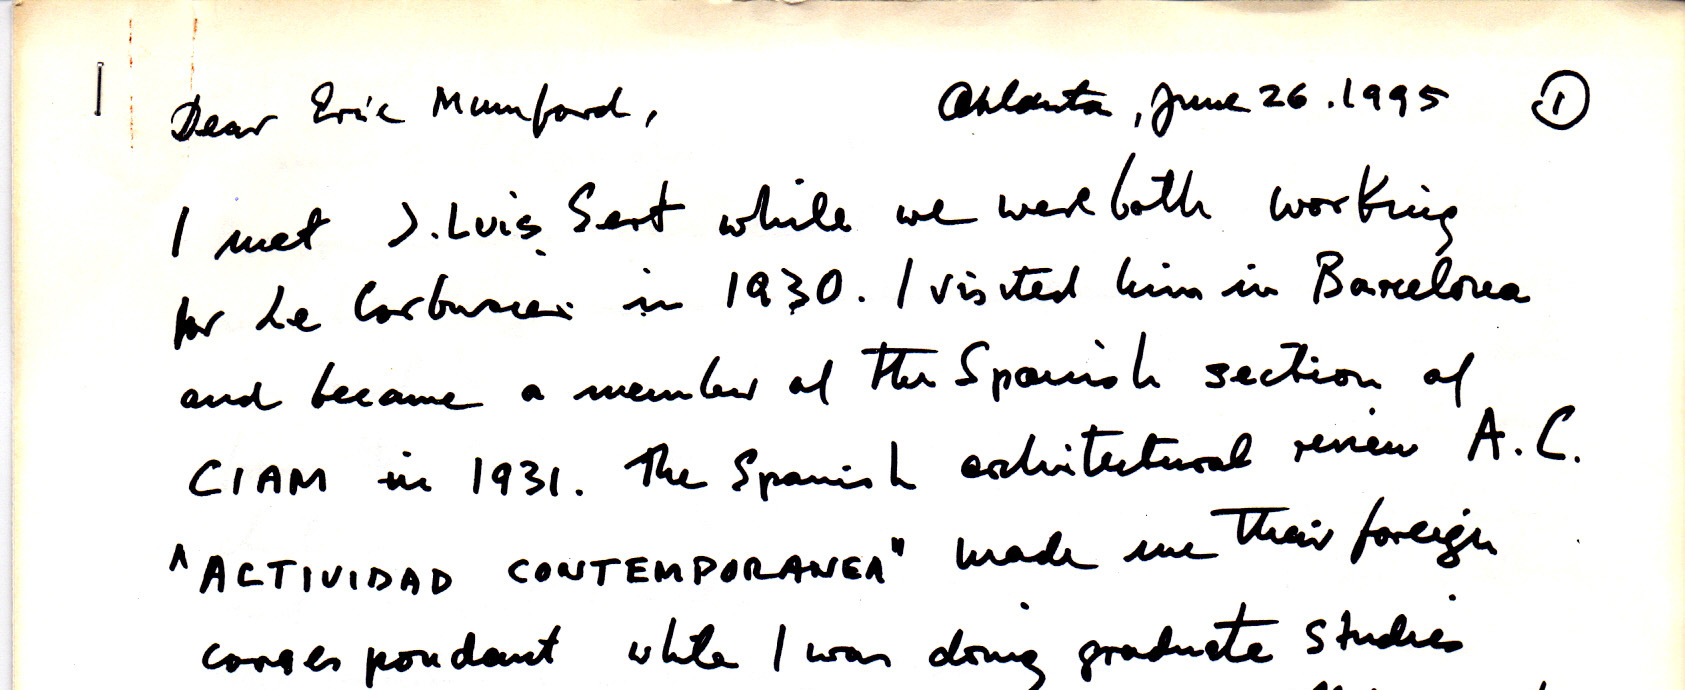 Dear Eric Mumford, Atlanta, June 26.1995 ①
I met J. Luis Sert while we were both working
for Le Corbusier in 1930. I visited him in Barcelona
and became a member of the Spanish section of
CIAM in 1931. The Spanish architectural review A.C.
"ACTIVIDAD CONTEMPORANEA" made me their foreign
correspondant while I was doing graduate studies